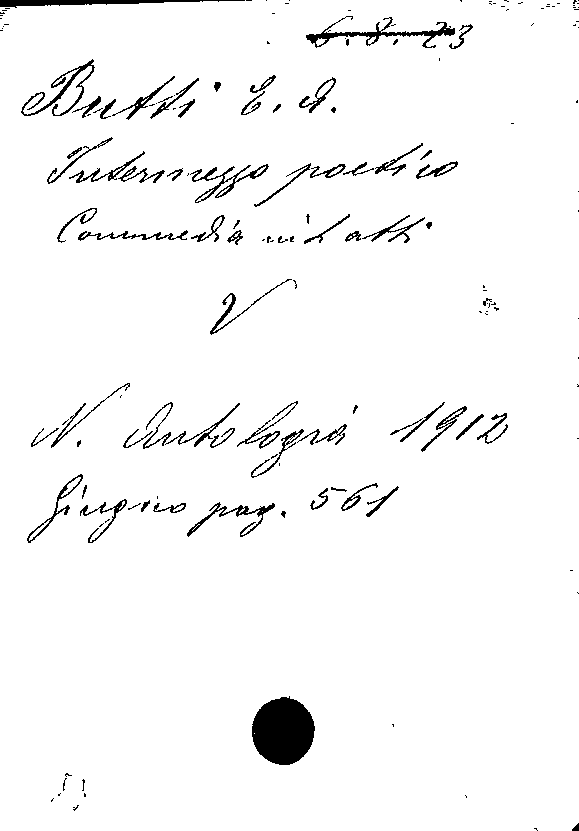 6.8.23
Butti E. A.
Intermezzo poetico
Commedia in atti
V
N. Antologia 1912
Giugno pag. 561